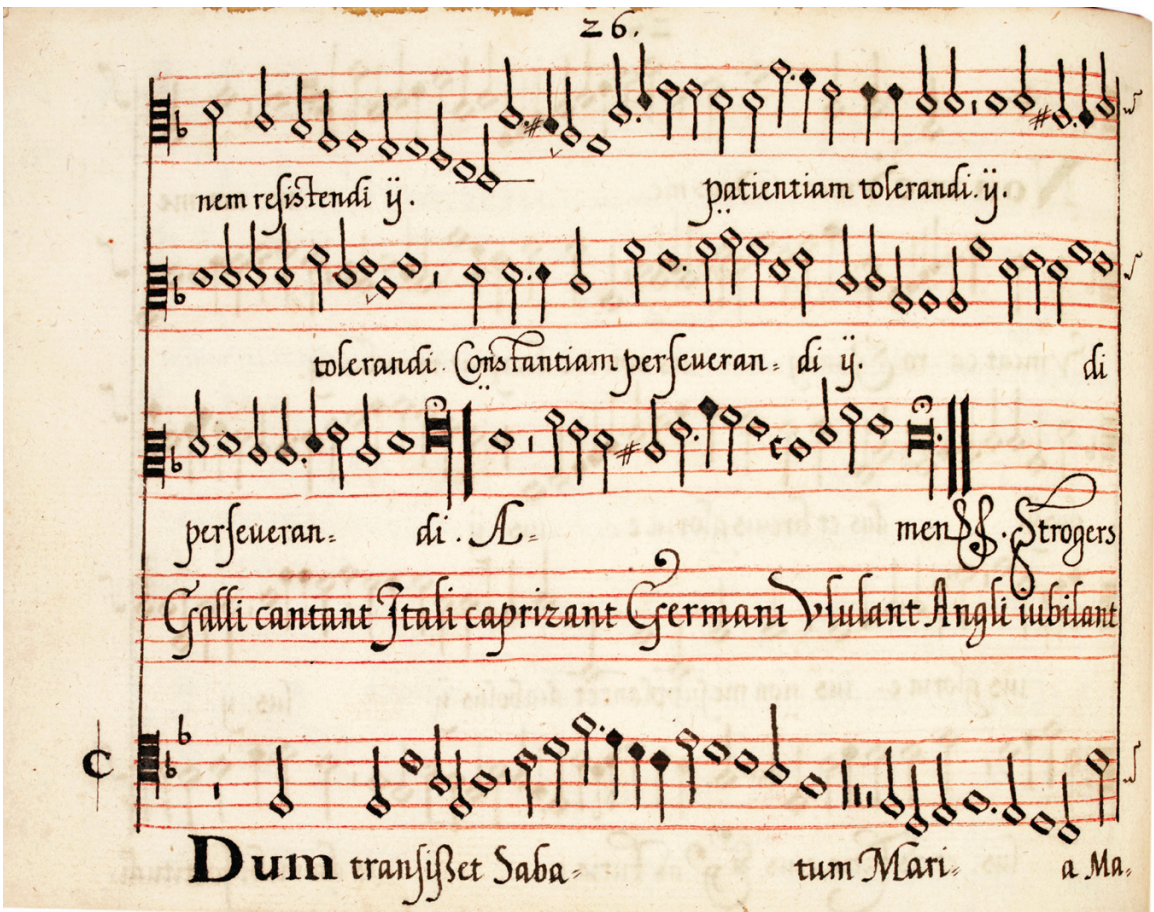 26.
nem resistendi ij. patientiam tolerandi. ij.
tolerandi. Constantiam perseueran= di ij. di
perseueran= di. A= men. Strogers
Galli cantant Itali caprizant Germani Vlulant Angli iubilant
Dum transisset Saba= tum Mari= a Ma=